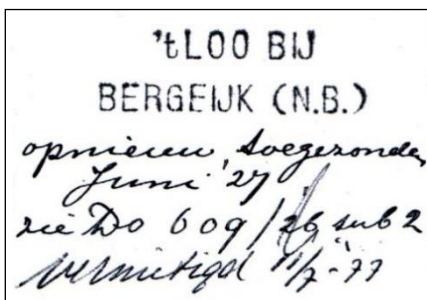 'tLOO BIJ
BERGEIJK (N.B.)
opnieuw toegezonden
Juni '27
zie Do 609/26 sub 2
vernietigd 11/7-77